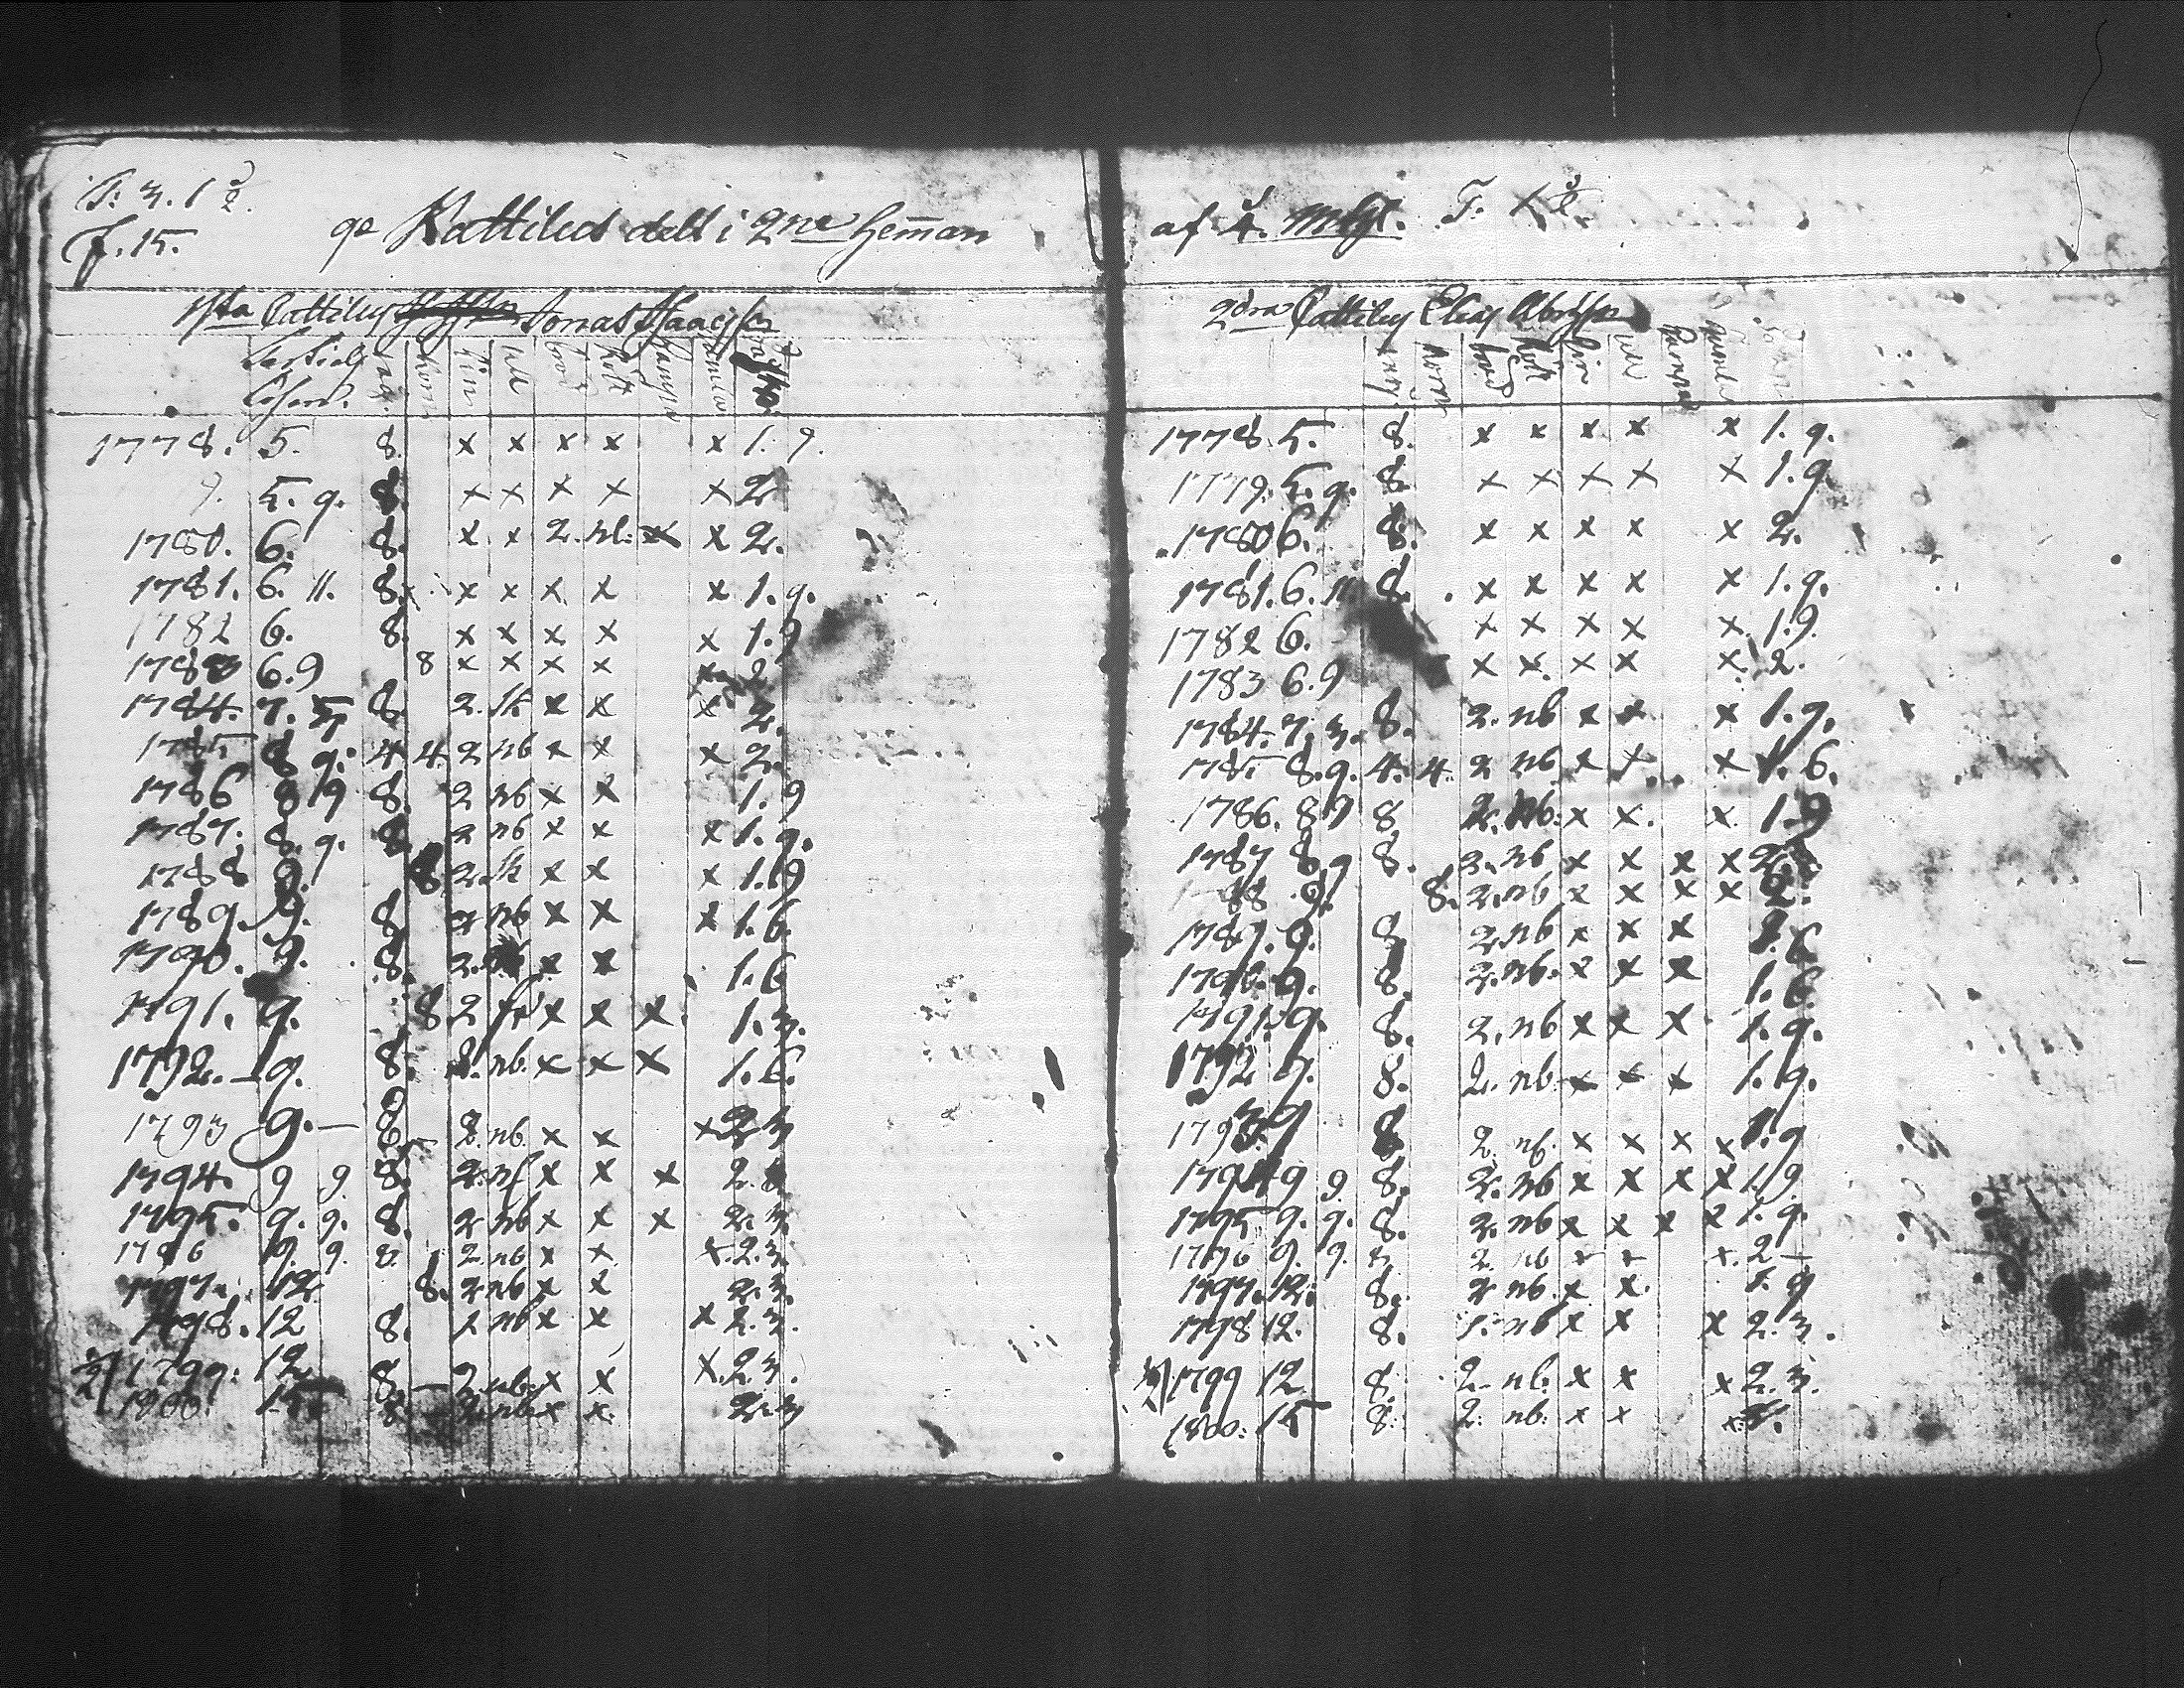 T. 3. 1 3/2.
f. 15.
9e Kattilus delt i 2ne Heman
1sta Cattilus Jonas Isaacsson
råg. korn lin ull höö
1778. 5. 8. x x x x x 1. 9.
9. 5. 9. 8. x x x x x 2
1780. 6. 8. x x 2. nb. x x 2.
1781. 6. 11. 8. x x x x x x 1. 9.
1782 6. 8. x x x x x 1. 9
1783 6. 9 8 x x x x x 2
1784. 7. 8. 2. x x x 2.
1785 8 9. 4 4 2 nb x x x 2.
1786 8 9 8. 2 nb x x 1. 9
1787. 8. 9. 8. 2 nb x x x 1. 9.
1788 9. 8 2. x x x 1. 9
1789. 9. 8 2 nb x x x 1. 6.
1790. 9. 8. 2. x x 1. 6
1791. 9. 8. 2 x x x 1. 3.
1792. – 9. 8. 2. nb. x x x 1. 6.
1793 9. – 8 2. nb. x x x 2 3
1794. 9 9. 8. 2. nb x x x 2.
1795. 9. 9. 8. 2 nb x x x 2. 3.
1796 9. 9. 8. 2. nb x x x. 2. 3.
1797. 12 8. 2 nb x x 2. 3.
1798. 12 8. 2 nb x x x 2. 3.
1799. 12 8. – 2 nb. x x x. 2 3.
1800. 15 8. 2. nb x x. 2. 3
af 4. Mtl. T. 1 3/2.
2dra Cattilus Elias Abrsson
råg korn höö lin ull
1778 5. 8. x x x x x 1. 9.
1779. 5. 9. 8. x x x x x 1. 9
1780 6. 8. x x x x x 2.
1781. 6. 11. 8. x x x x x 1. 9.
1782 6. x x x x x. 1. 9.
1783 6. 9 x x. x x x. 2.
1784. 7. 3. 8. 2. nb x x x 1. 9.
1785 8. 9. 4. 4. 2 nb. x x. x 1. 6.
1786. 8 9 8 2. nb. x x. x. 1. 9
1787 8. 9 8. 2. nb x x x x 2.
88 9. 8. 2. nb x x x x 2.
1789. 9. 8 2. nb x x x 1. 6
1790. 9. 8. 2. nb. x x x 1. 6.
1791. 9. 8. 2. nb x x x 1. 9.
1792 9. 8. 2. nb. x x x 1. 9.
1793. 9 8 2 nb. x x x x 1. 9
1794 9 9 8. 2. nb x x x x 1. 9
1795 9. 9. 8. 2. nb x x x x 1. 9.
1796 9. 9. 8. 2. nb x x x. 2 –
1797. 12. 8. 2 nb. x x. 1. 9
1798 12. 8. 2. nb x x x 2. 3.
1799 12 8. 2. nb. x x x 2. 3.
1800. 15 8. 2. nb. x x x.